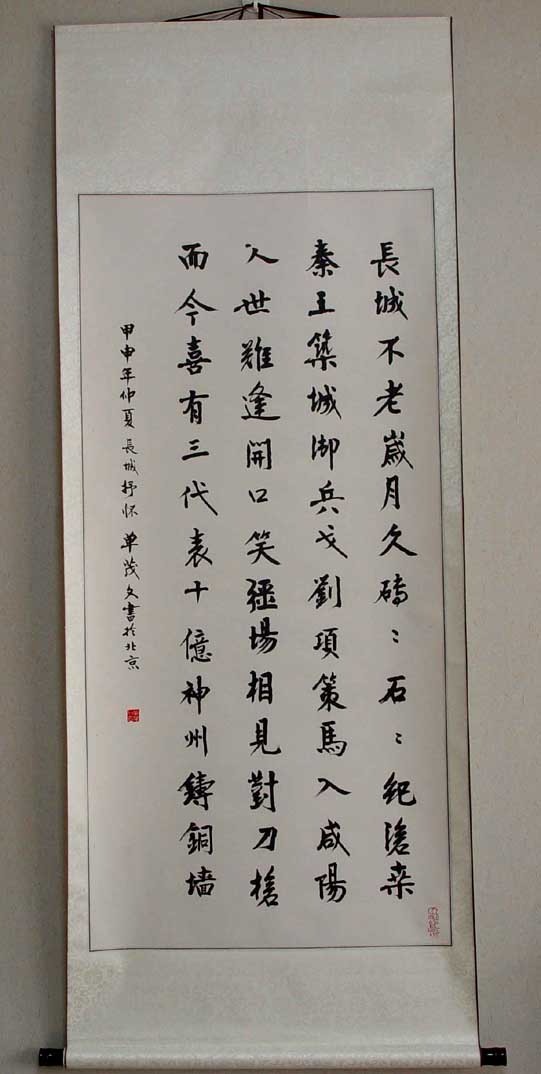 長城不老歲月久磚〻石〻紀滄桑
秦王築城御兵戈劉項策馬入咸陽
人世難逢開口笑疆場相見對刀槍
而今喜有三代表十億神州鑄銅墙
甲申年仲夏長城抒怀单茂文書於北京